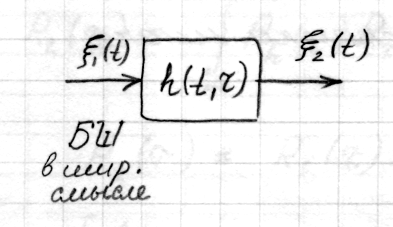 ξ₁(t)
h(t,τ)
ξ₂(t)
БШ
в шир.
смысле